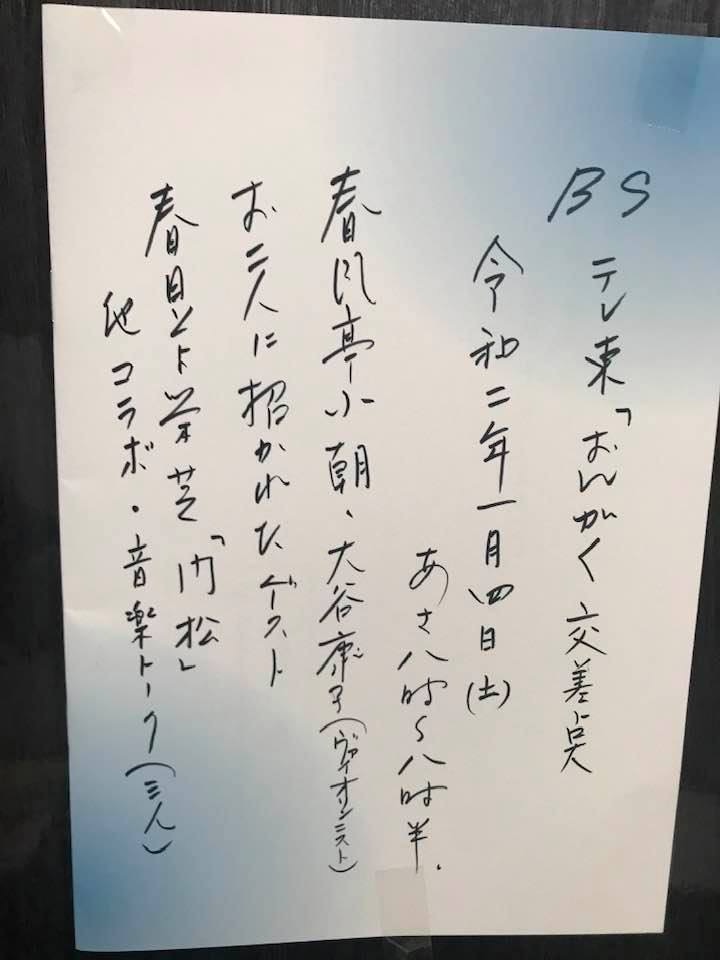 BS テレ東「おんがく交差点
令和二年一月四日(土)
あさ八時〜八時半.
春風亭小朝、大谷康子(ヴァイオリニスト)
お二人に招かれたゲスト
春日とよ栄芝「門松」
他コラボ・音楽トーク(三人)